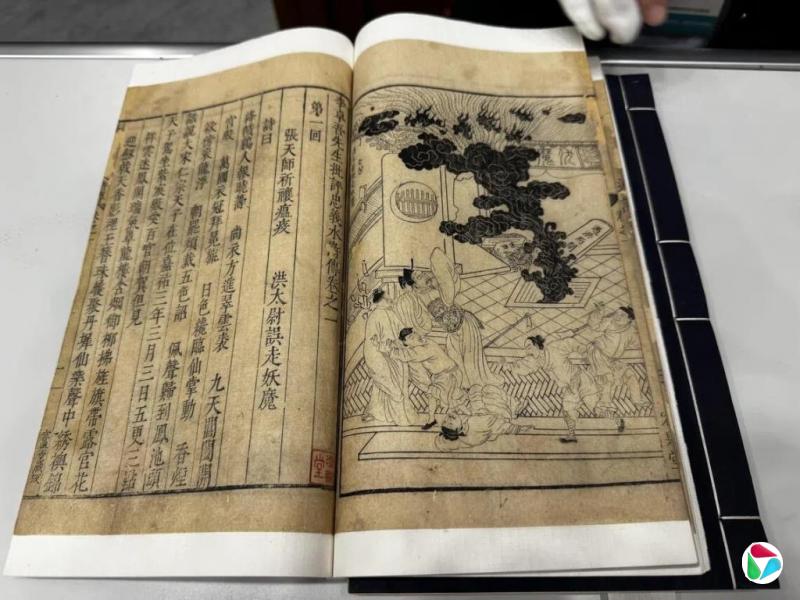 李卓吾先生批評忠義水滸傳卷之一
第一回
張天師祈禳瘟疫 洪太尉誤走妖魔
詩曰
絳幘雞人報曉籌 尚衣方進翠雲裘 九天閶闔開
宮殿 萬國衣冠拜冕旒 日色纔臨仙掌動 香煙
欲傍袞龍浮 朝罷須裁五色詔 佩聲歸到鳳池頭
話說大宋仁宗天子在位嘉祐三年三月三日五更三點
天子駕坐紫宸殿受百官朝賀但見
祥雲迷鳳閣瑞氣罩龍樓含烟御柳拂旌旗帶露宮花
迎劍戟天香影裡玉簪珠履聚丹墀仙樂聲中繡襖錦